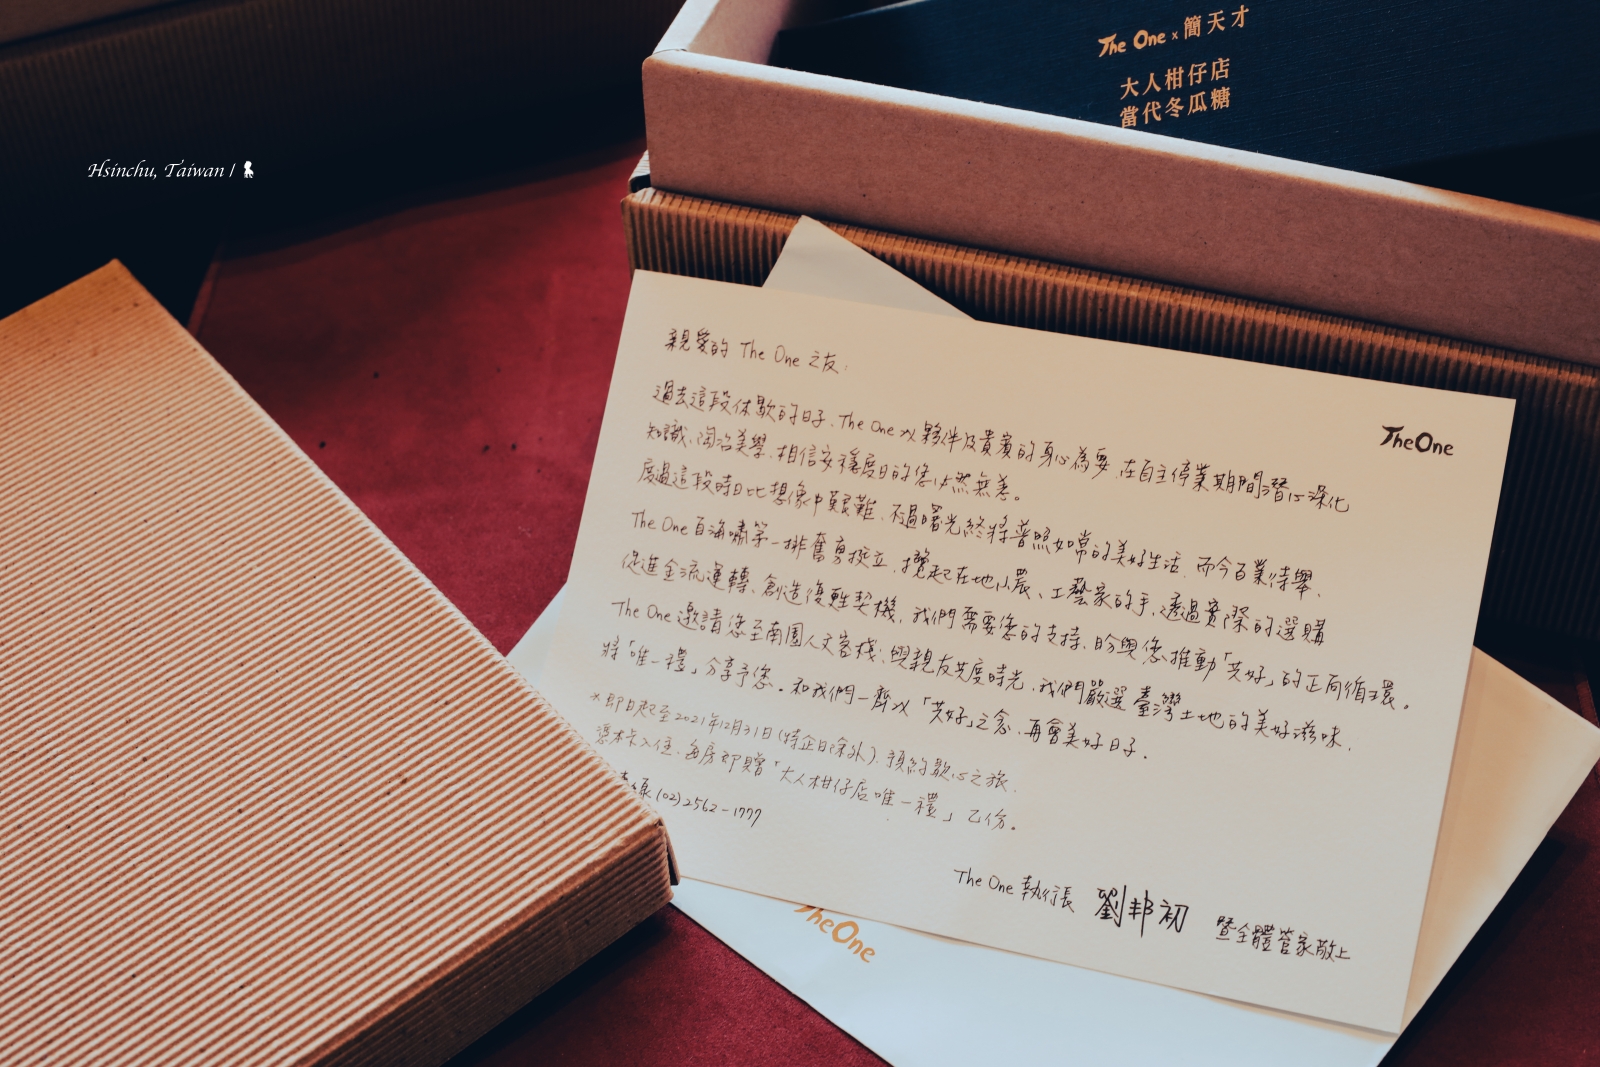 The One × 簡天才
大人柑仔店
當代冬瓜糖
Hsinchu, Taiwan /
TheOne
親愛的 The One 之友：
過去這段休歇的日子，The One 以夥伴及貴賓的身心為要，在自主停業期間潛心深化
知識、陶冶美學，相信安穩度日的您必然無恙。
度過這段時日比想像中艱難，不過曙光終將普照如常的美好生活，而今百業待舉，
The One 自海嘯第一排奮勇挺立，攬起在地小農、工藝家的手，透過實際的選購
促進金流運轉、創造復甦契機，我們需要您的支持，盼與您推動「共好」的正向循環。
The One 邀請您至南園人文客棧，與親友共度時光，我們嚴選臺灣土地的美好滋味，
將「唯一禮」分享予您。和我們一齊以「共好」之念，再會美好日子。
*即日起至2021年12月31日(特企日除外)，預約歇心之旅，
憑本卡入住，每房即贈「大人柑仔店唯一禮」乙份。
專線 (02)2562-1777
The One 執行長 劉邦初 暨全體管家敬上
TheOne